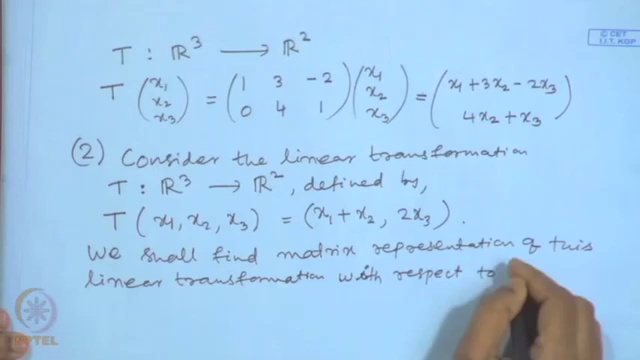 © CET
I.I.T. KGP
T : ℝ³ ⟶ ℝ²
T (x₁ x₂ x₃) = (1 3 -2 0 4 1) (x₁ x₂ x₃) = (x₁ + 3x₂ - 2x₃ 4x₂ + x₃)
(2) Consider the linear transformation
T : ℝ³ ⟶ ℝ², defined by,
T (x₁, x₂, x₃) = (x₁ + x₂, 2x₃).
We shall find matrix representation of this
linear transformation with respect to
NPTEL